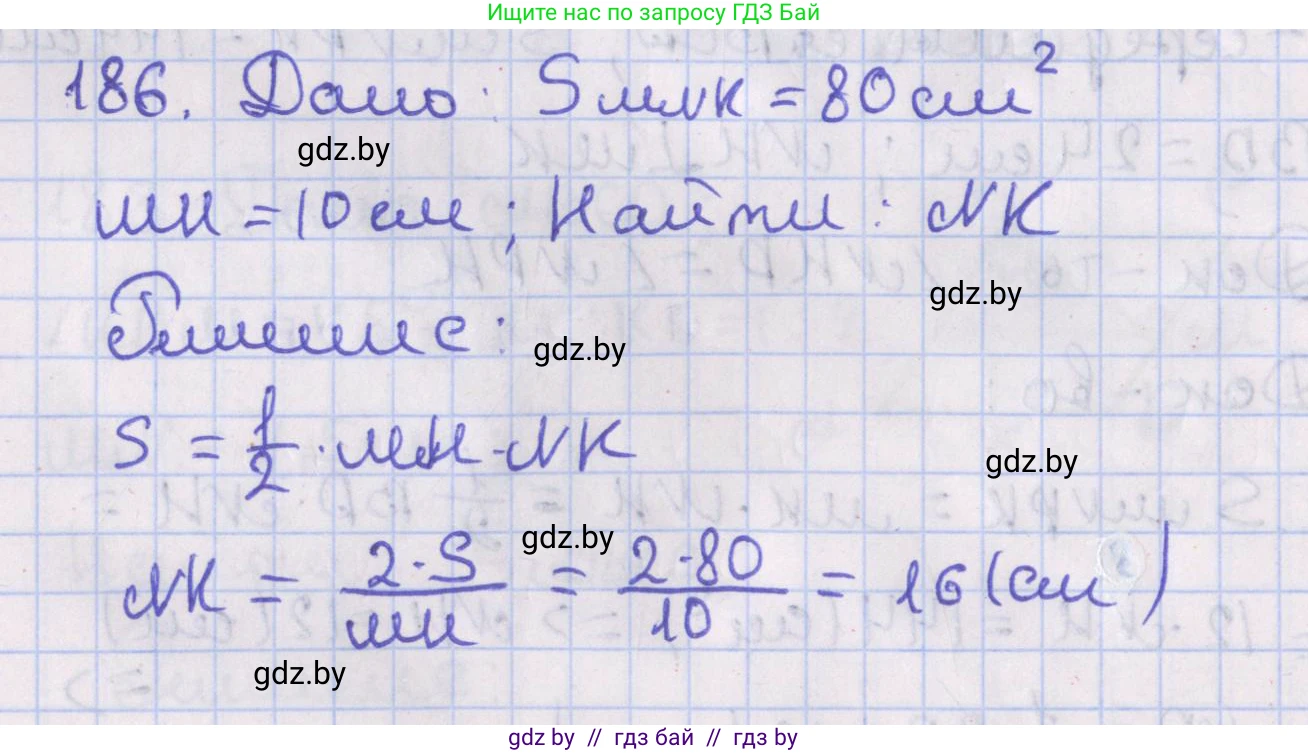 Ищите нас по запросу ГДЗ Бай
186. Дано: Sмnк = 80 см²
gdz.by
мн = 10 см; Найти: NK
gdz.by
Решение:
gdz.by
S = 1/2 · мн · NK
gdz.by
gdz.by
NK = 2·S/мн = 2·80/10 = 16 (см)
gdz.by
gdz by // гдз бай // гдз by